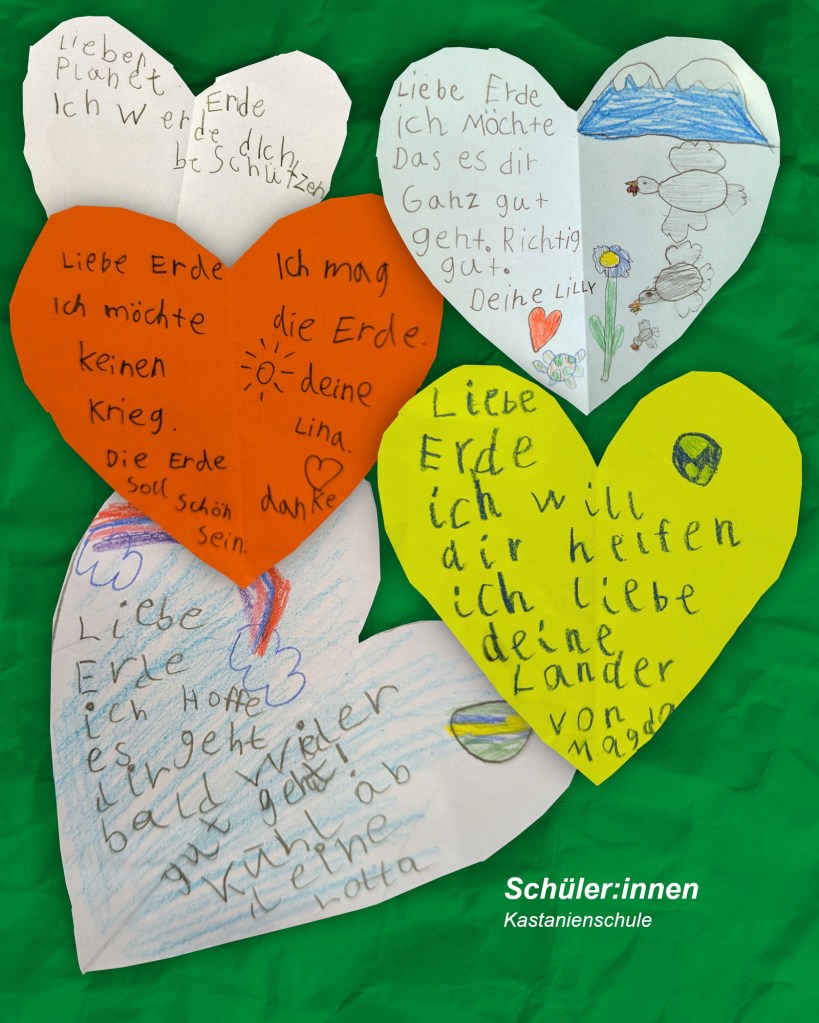 Lieber
Planet Erde
Ich werde dich
beschützen
Liebe Erde
ich Möchte
Das es dir
Ganz gut
geht. Richtig
gut.
Deine Lilly
Liebe Erde
Ich möchte
keinen
Krieg.
Die Erde
soll schön
sein.
Ich mag
die Erde.
deine
Lina.
danke
Liebe
Erde
ich will
dir helfen
ich liebe
deine
Lander
von
Magda
Liebe
Erde
ich Hoffe
es geht
dir
bald wieder
gut geht!
Kühl ab
deine
Lotta
Schüler:innen
Kastanienschule